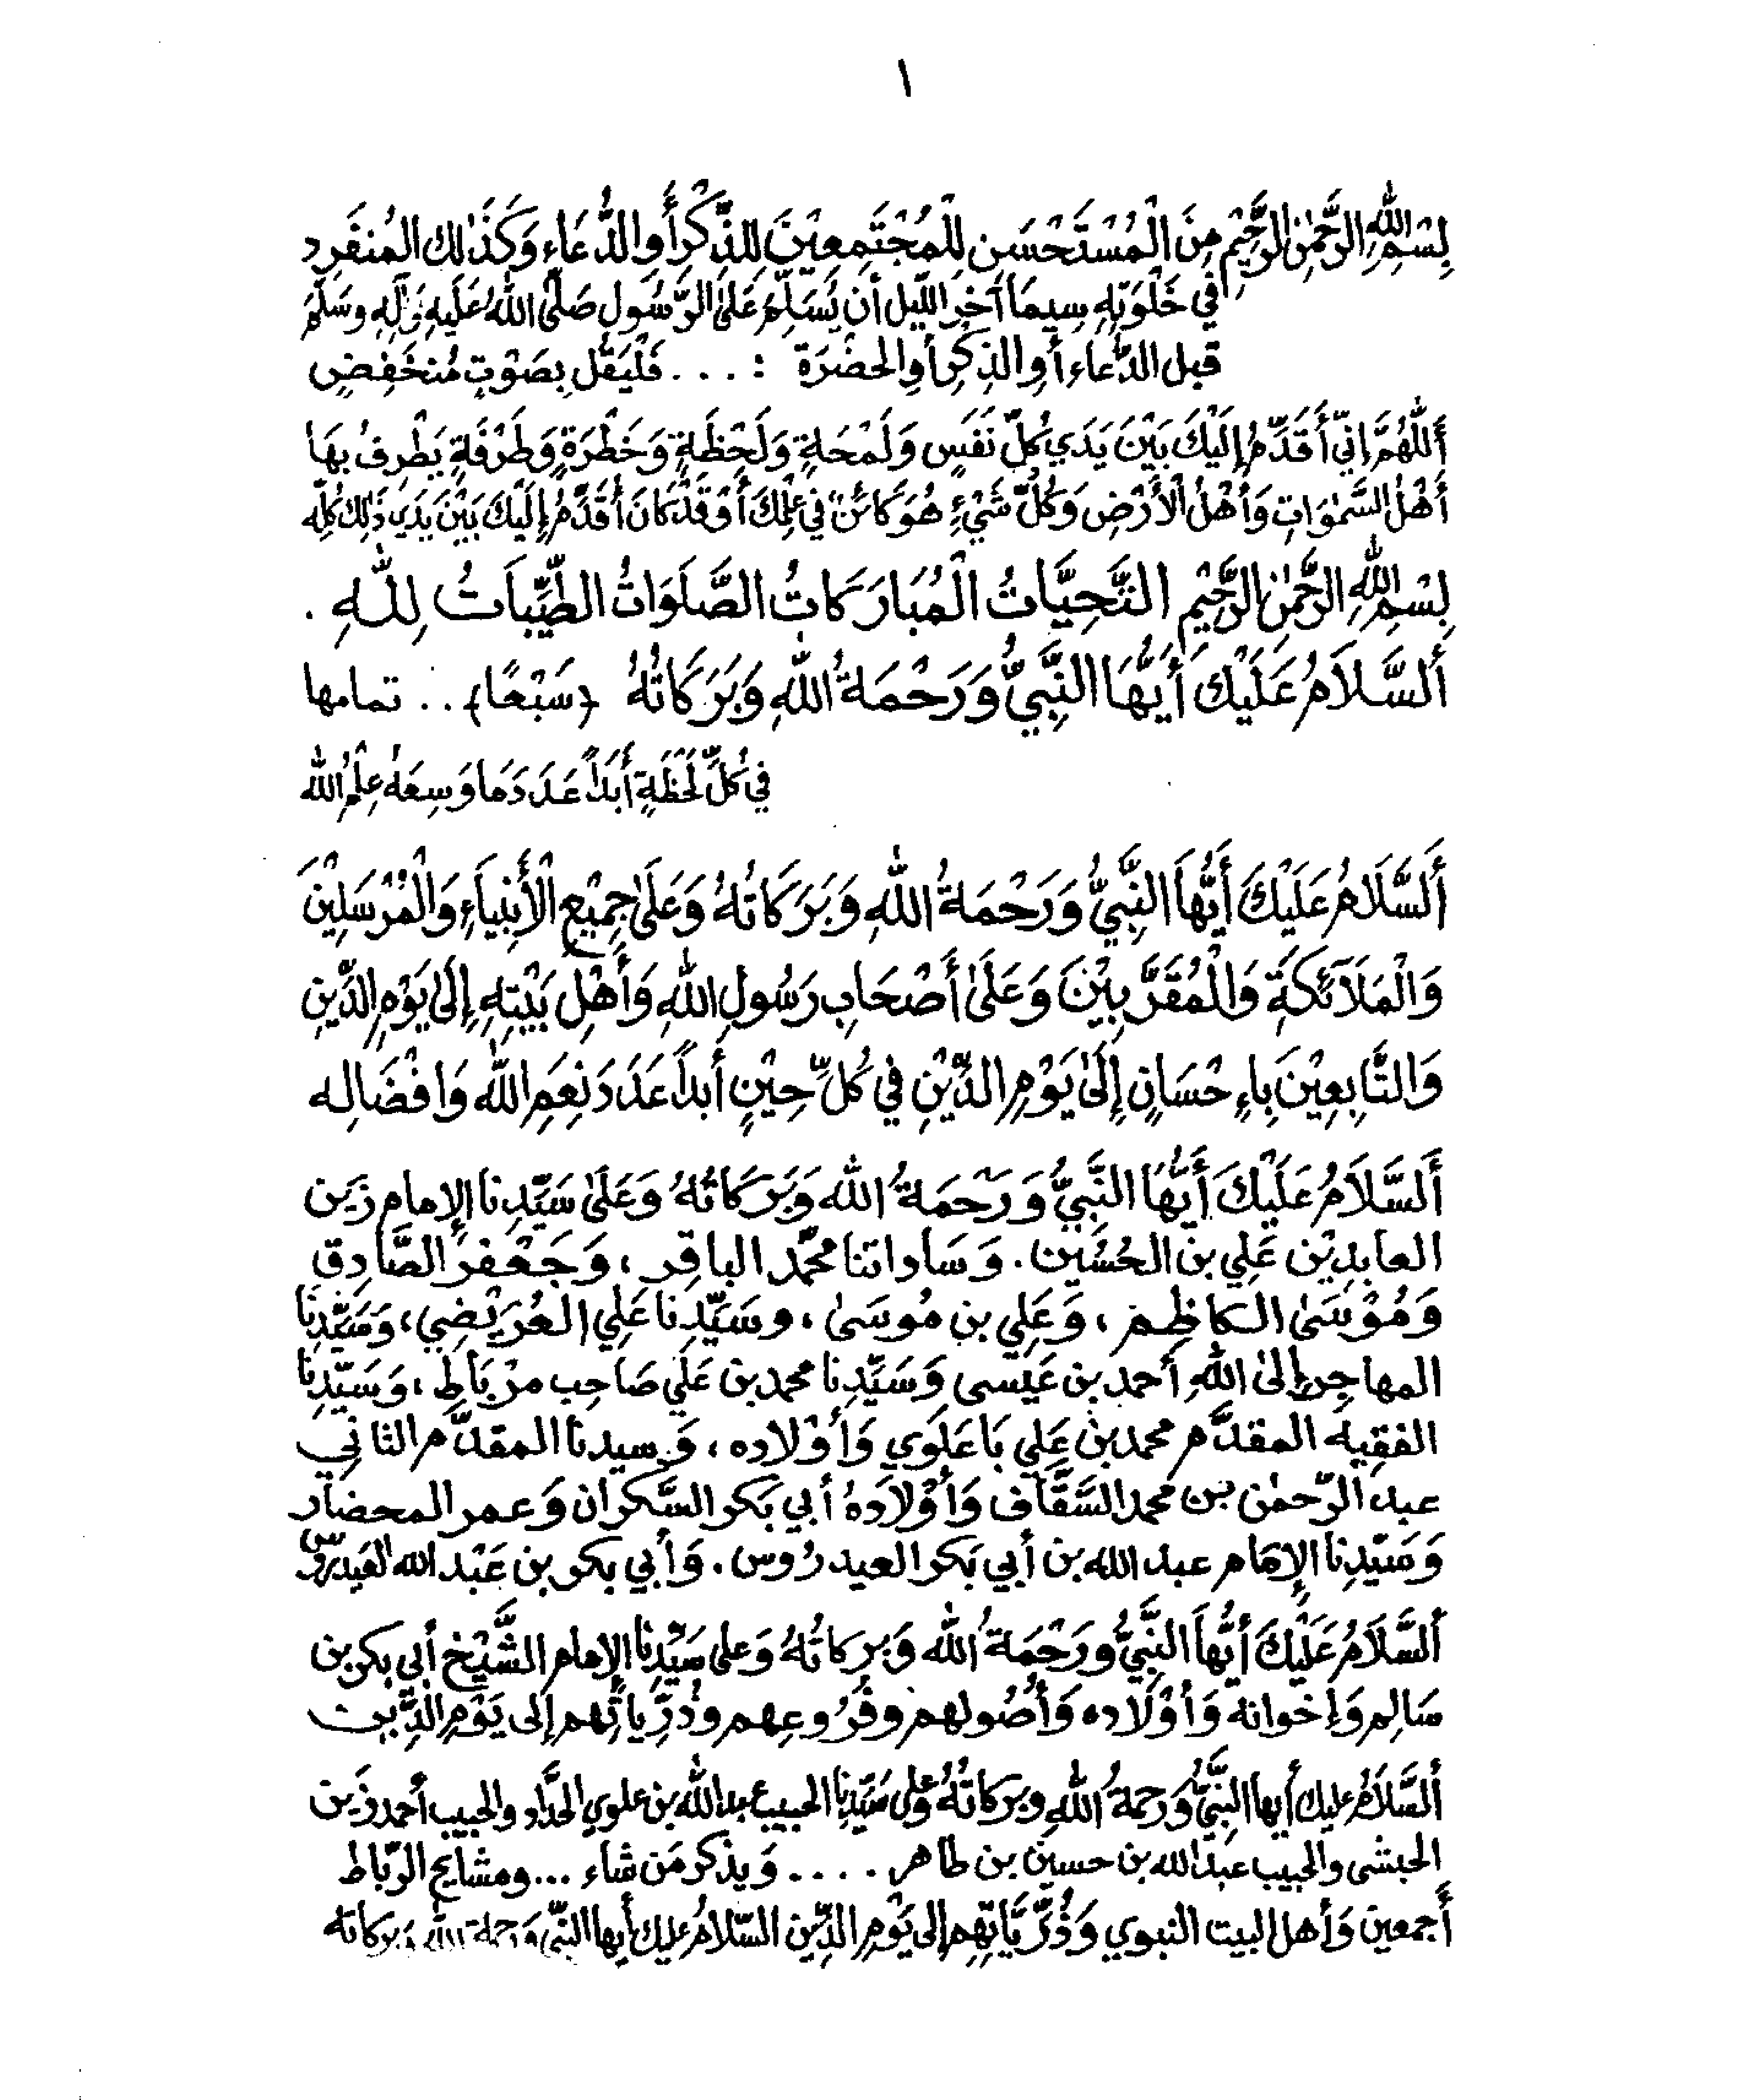 ١
بِسْمِ اللهِ الرَّحْمٰنِ الرَّحِيْمِ مِنَ الْمُسْتَحْسَنِ لِلْمُجْتَمِعِيْنَ لِلذِّكْرِ أَوِ الدُّعَاءِ وَكَذٰلِكَ المُنفَرِد
في خَلْوَتِهِ سِيمَا آخِرَ اللَّيل أن يُسَلِّمَ عَلَى الرَّسُول صَلَّى اللهُ عَلَيهِ وَآلِهِ وسَلَّمَ
قبل الدُّعَاءِ أوِ الذِكْرِ أوِ الحضْرَة : . . . فَلْيَقُل بِصَوْتٍ مُنخَفِضٍ
أَللّٰهُمَّ إِنِّي أُقَدِّمُ إِلَيْكَ بَيْنَ يَدَي كُلِّ نَفَسٍ وَلَمْحَةٍ وَلَحْظَةٍ وَخَطْرَةٍ وَطَرْفَةٍ يَطْرِفُ بِهَا
أَهْلُ السَّمٰوَاتِ وَأَهْلُ الْأَرْضِ وَكُلِّ شَيْءٍ هُوَ كَائِنٌ فِي عِلْمِكَ أَوْ قَدْ كَانَ أُقَدِّمُ إِلَيْكَ بَيْنَ يَدَي ذٰلِكَ كُلِّه
بِسْمِ اللهِ الرَّحْمٰنِ الرَّحِيْمِ التَّحِيَّاتُ الْمُبَارَكَاتُ الصَّلَوَاتُ الطَّيِّبَاتُ لِلّٰهِ .
أَلسَّلَامُ عَلَيْكَ أَيُّهَا النَّبِيُّ وَرَحْمَةُ اللهِ وَبَرَكَاتُهُ (سَبْعًا) . . تمامها
فِي كُلِّ لَحْظَةٍ أَبَدًا عَدَدَ مَا وَسِعَهُ عِلْمُ الله
أَلسَّلَامُ عَلَيْكَ أَيُّهَا النَّبِيُّ وَرَحْمَةُ اللهِ وَبَرَكَاتُهُ وَعَلَىٰ جِمِيْعِ الْأَنْبِيَاءِ وَالْمُرْسَلِيْنَ
وَالْمَلَآئِكَةِ وَالْمُقَرَّبِيْنَ وَعَلَىٰ أَصْحَابِ رَسُولِ اللهِ وَأَهْلِ بَيْتِهِ إِلَىٰ يَوْمِ الدِّيْنِ
وَالتَّابِعِيْنَ بِاءِحْسَانٍ إِلَىٰ يَوْمِ الدِّيْنِ فِي كُلِّ حِيْنٍ أَبَدًا عَدَدَ نِعَمِ الله وَافْضَالِه
أَلسَّلَامُ عَلَيْكَ أَيُّهَا النَّبِيُّ وَرَحْمَةُ الله وَبَرَكَاتُهُ وَعَلَىٰ سَيِّدِنَا الإِمام زَين
العابِدِيْن عَلِي بن الحُسَين . وَسَاداتنا محمَّد الباقِر ، وَجَعْفَر الصَّادِق
وَمُوْسَى الكاظِم ، وَعَلِي بن مُوسَىٰ ، وسَيِّدِنَا عَلِي العُرَيْضِي ، وَسَيِّدِنَا
المهاجِر إلىٰ اللهِ أحمد بن عَيسى وَسَيِّدِنا محمد بن عَلي صَاحِب مرْبَاط ، وَسَيِّدِنا
الفقِيه المقدَّم محمد بن عَلِي بَاعَلَوِي وَأَوْلاده ، وَسيدنا المقدّم الثانِي
عبد الرّحمٰن بن محمد السَّقَّاف وَأَوْلَادَهُ أبي بَكر السَّكران وَعمر المحضار
وَسَيِّدِنا الإِمَام عبد الله بن أبي بَكر العيدرُوس . وَأبي بكر بن عَبْد الله العَيدَرُوسْ
أَلسَّلَامُ عَلَيْكَ أَيُّهَا النَّبِيُّ وَرَحْمَةُ الله وَبَركاتُهُ وَعَلى سَيِّدِنا الإمام الشَّيْخ أبي بكر بن
سَالِم وَإخوانه وَأَوْلَاده وَأُصُولهم وفُرُوعِهم وذُرِّيَّاتِهم إلى يَوْمِ الدِّين
أَلسَّلَامُ عليك أيها النَّبِيُّ وَرَحمةُ اللهِ وبركاتُهُ وَعَلى سَيِّدِنَا الحبيب عبد الله بن علوي الحدَّاد والحبيب أحمد زَين
الحبشى والحبيب عبد الله بن حسين بن طاهر . . . . وَيذكر مَن شاء ... ومشايخ الرّباط
أَجمعين وَأهل البيت النبوي وَذُرِّيَّاتِهِم إلى يَوْمِ الدِّين السّلامُ عليك أيها النبيّ وَرحمة الله وَبركاته